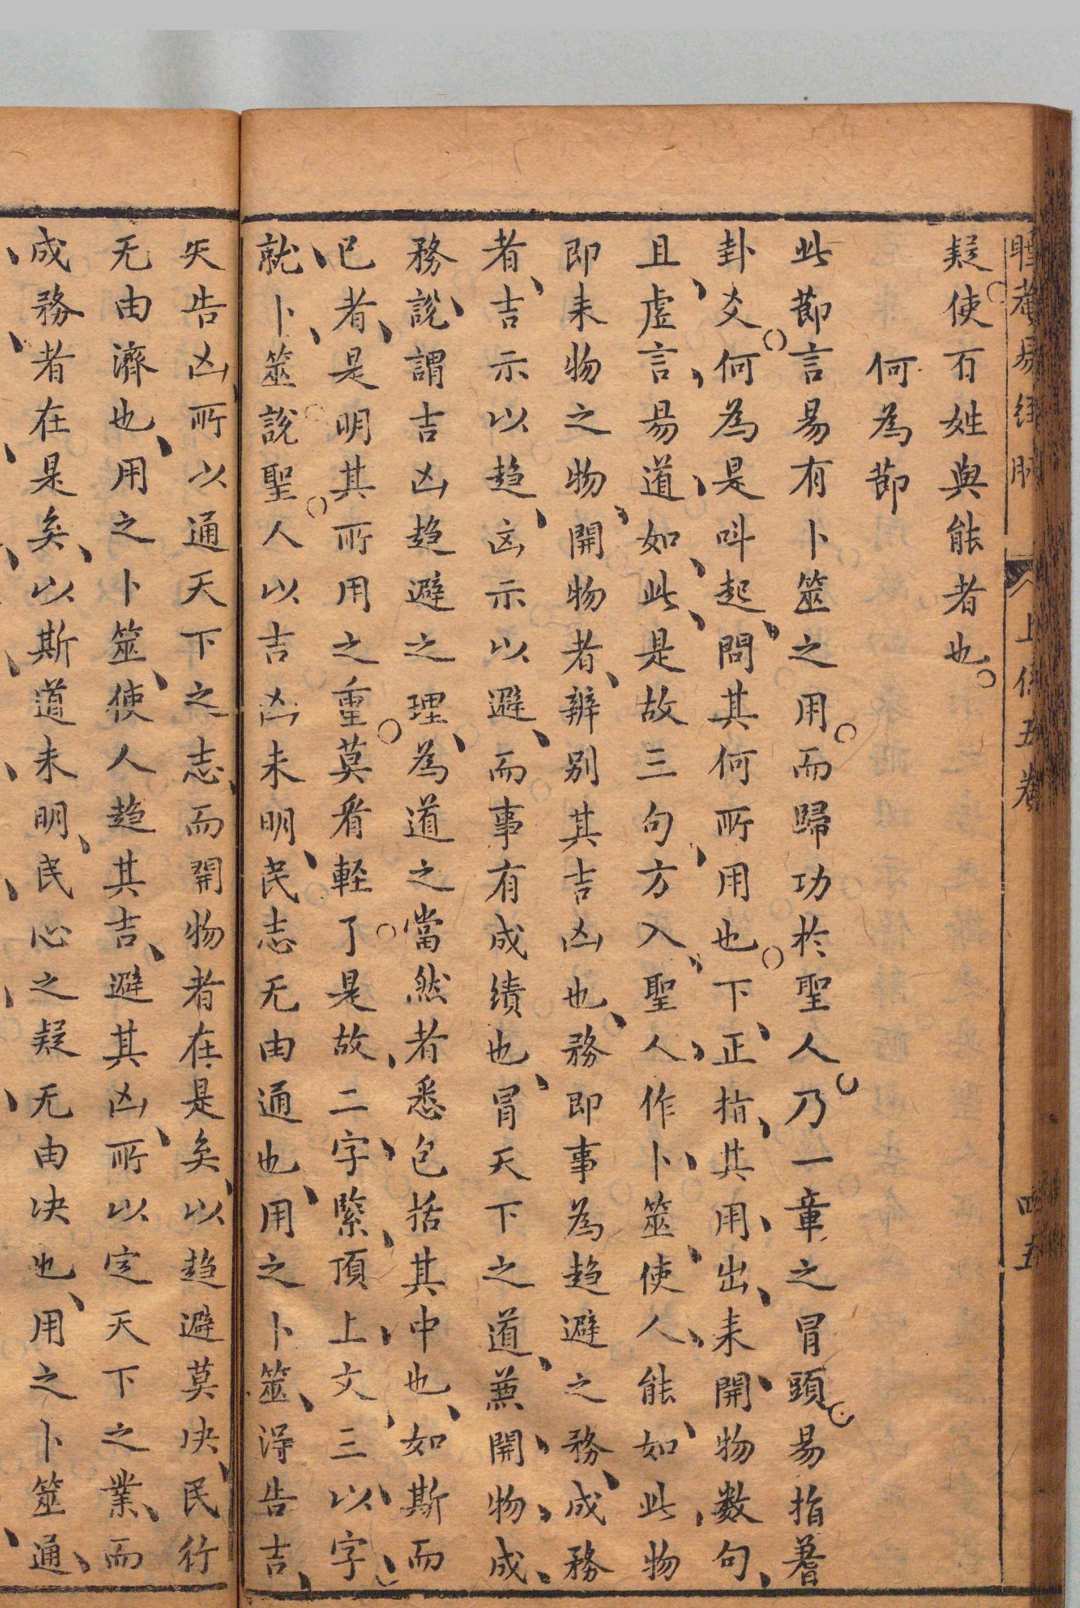 睡菴易經脉 上傳五卷 四五
疑使百姓與能者也
何為節
此節言易有卜筮之用而歸功於聖人乃一章之冒頭易指蓍
卦爻何為是呌起問其何所用也下正指其用出耒開物数句
且虚言易道如此是故三句方入聖人作卜筮使人能如此物
即耒物之物開物者辨别其吉凶也務即事為趋避之務成務
者吉示以趋凶示以避而事有成績也冒天下之道蒹開物成
務說謂吉凶趋避之理為道之當然者悉包括其中也如斯而
已者是明其所用之重莫看輕了是故二字緊頂上文三以字
就卜筮說聖人以吉凶未明民志无由通也用之卜筮得告吉
失告凶所以通天下之志而開物者在是矣以趋避莫决民行
无由濟也用之卜筮使人趋其吉避其凶所以定天下之業而
成務者在是矣以斯道未明民心之疑无由决也用之卜筮通